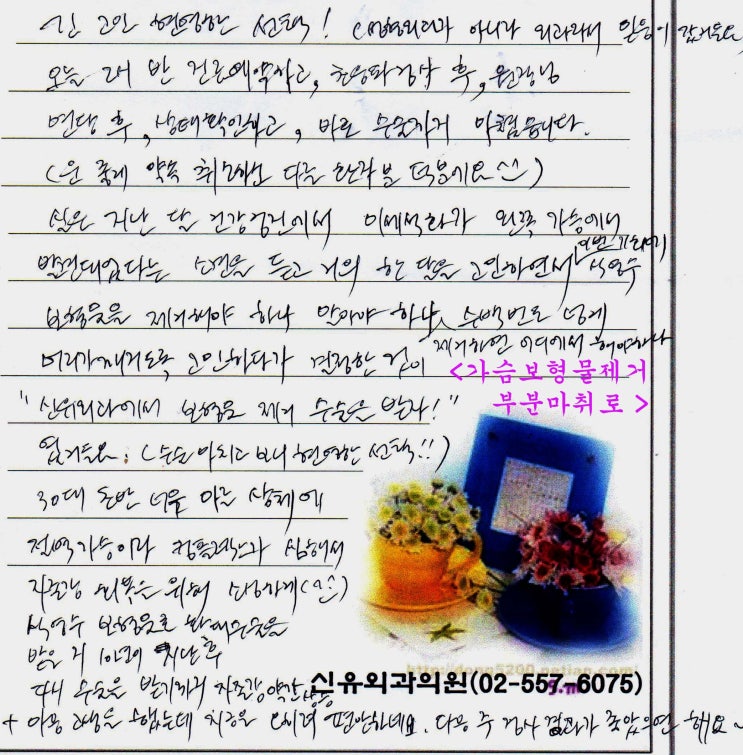 긴 고민 현명한 선택! (성형외과가 아니라 외과라서 믿음이 갔거든요
오늘 2시 반 진료예약하고, 초음파검사 후, 원장님
면담 후, 상태확인하고, 바로 수술까지 마쳤습니다.
(운 좋게 약속 취소하신 다른 환자분 덕분에요^^)
실은 지난 달 건강검진에서 미세석회가 왼쪽 가슴에서
발견되었다는 소견을 듣고 거의 한 달을 고민하면서 이번 기회에 식염수
보형물을 제거해야 하나 말아야 하나, 수백번도 넘게
제거하면 어디에서 해야하나
머리가 깨지도록 고민하다가 결정한 것이
<가슴보형물제거
부분마취로>
"신유외과에서 보형물 제거 수술을 받자!"
였거든요. (수술 마치고 보니 현명한 선택!!)
30대 초반 너무 마른 상체에
절벽가슴이라 컴플렉스가 심해서
자존감 회복을 위해 소심하게(^^)
식염수 보형물로 확대수술을
받은 지 10년이 지난후
다시 수술을 받기까지 자존감 약간 상승
신유외과의원(02-557-6075)
+ 마음 고생을 했는데 지금은 오히려 편안하네요. 다음 주 검사 결과가 좋았으면 해요~